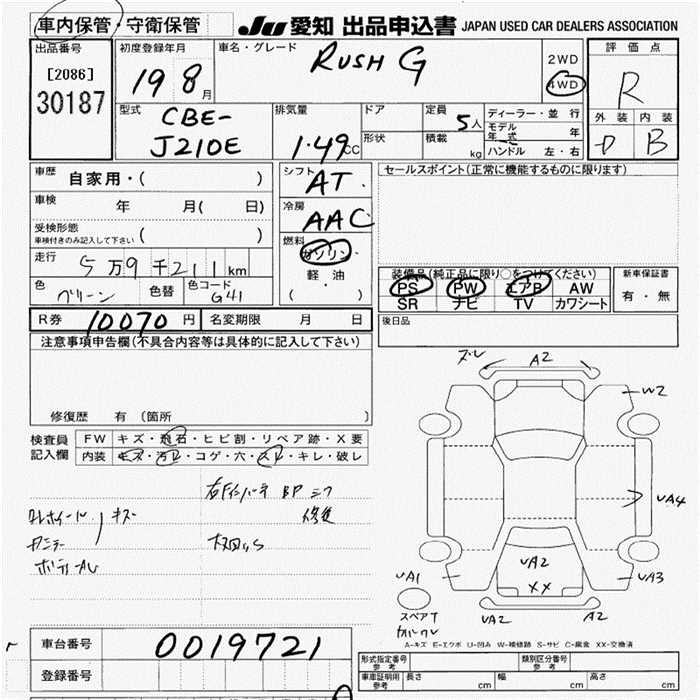 車内保管・守衛保管
JU 愛知 出品申込書 JAPAN USED CAR DEALERS ASSOCIATION
出品番号
[2086]
30187
初度登録年月
19 8月
車名・グレード
RUSH G
2WD
4WD
評価点
R
外装 内装
D B
型式
CBE-
J210E
排気量
1.49CC
ドア
形状
定員
5人
積載
kg
ディーラー・並行
モデル
年式 年
ハンドル 左・右
車歴
自家用・( )
車検
年 月( 日)
受検形態
車検付きのみ記入して下さい ( )
走行
5万9千211km
色
グリーン
色替
色コード
G41
シフト
AT
冷房
AAC
燃料
ガソリン
軽油
( ・ )
セールスポイント(正常に機能するものに限ります)
装備品(純正品に限り○をつけてください)
PS PW エアB AW
SR ナビ TV カワシート
新車保証書
有・無
後日品
R券 10070円
名変期限 月 日
注意事項申告欄(不具合内容等は具体的に記入して下さい)
修復歴 有(箇所 )
検査員
記入欄
FW キズ・飛石・ヒビ割・リペア跡・X要
内装 キズ・汚レ・コゲ・穴・スレ・キレ・破レ
BP
修复
キズ
A2
W2
UA4
UA3
A2
UA2
UA1
UA2
XX
スペアT
A-キズ E-エクボ U-凹み W-補修跡 S-サビ C-腐食 XX-交換済
車台番号
0019721
登録番号
形式指定番号
参考
類別区分番号
参考
車庫証明用
参考
長さ cm 幅 cm 高さ cm